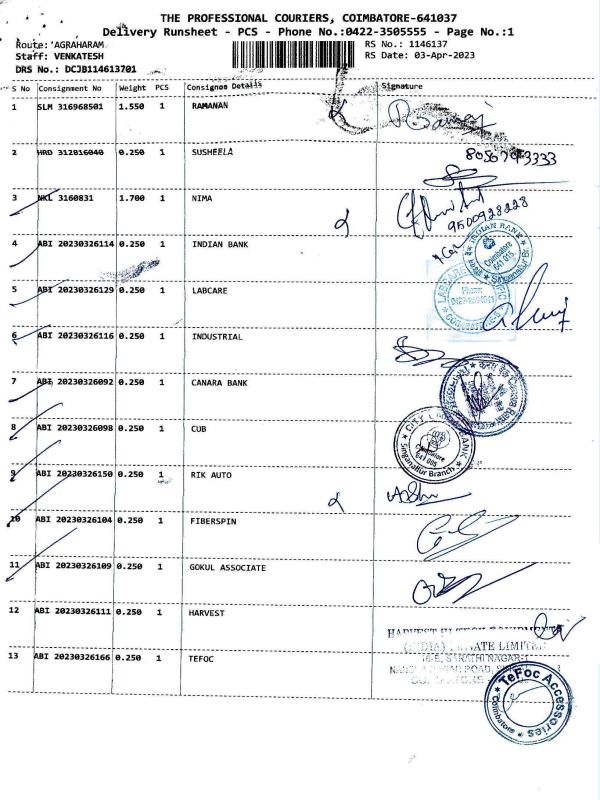 THE PROFESSIONAL COURIERS, COIMBATORE-641037
Delivery Runsheet - PCS - Phone No.:0422-3505555 - Page No.:1
Route: AGRAHARAM RS No.: 1146137
Staff: VENKATESH RS Date: 03-Apr-2023
DRS No.: DCJB114613701
S No Consignment No Weight PCS Consignee Details Signature
1 SLM 316968501 1.550 1 RAMANAN
2 HRD 312816040 0.250 1 SUSHEELA
8056793333
3 NKL 3160831 1.700 1 NIMA
9500928228
4 ABI 20230326114 0.250 1 INDIAN BANK
INDIAN BANK
Coimbatore
641 015
Singanallur Br.
5 ABI 20230326129 0.250 1 LABCARE
LABCARE
Phone:
6 ABI 20230326116 0.250 1 INDUSTRIAL
7 ABI 20230326092 0.250 1 CANARA BANK
Canara Bank
8 ABI 20230326098 0.250 1 CUB
CITY UNION BANK
Coimbatore
641 015
Singanallur Branch
9 ABI 20230326150 0.250 1 RIK AUTO
10 ABI 20230326104 0.250 1 FIBERSPIN
11 ABI 20230326109 0.250 1 GOKUL ASSOCIATE
12 ABI 20230326111 0.250 1 HARVEST
HARVEST HI-TECH EQUIPMENTS
(INDIA) PRIVATE LIMITED
13 ABI 20230326166 0.250 1 TEFOC
TeFoc Accessories
Coimbatore